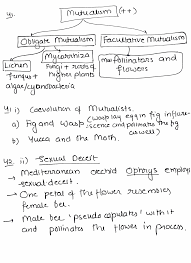 Mutualism (++)
Obligate Mutualism
Facultative Mutualism
Lichen
fungus +
algae/cyanobacteria
Mycorrhiza
Fungi + roots of
higher plants
pollinators and
flowers
i) Coevolution of Mutualists.
a) Fig and Wasp (wasp lay egg in fig inflor-
escence and pollinates the fig
as well)
b) Yucca and the Moth.
ii) Sexual Deceit
→ Mediterranean orchid Ophrys employs
sexual deceit.
→ One petal of the flower resembles
female bee.
→ Male bee 'pseudocopulates' with it
and pollinates the flower in process.